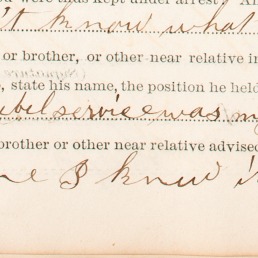 were thus kept under arrest?
't know what
or brother, or other near relative in
state his name, the position he held
rebel service was my
brother or other near relative advised
me I knew i